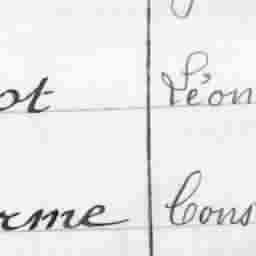 ot Léon
rme Cons